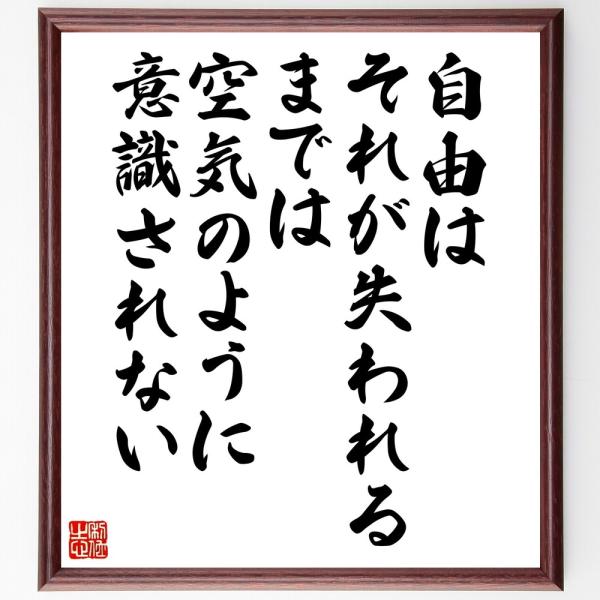 自由は
それが失われる
までは
空気のように
意識されない